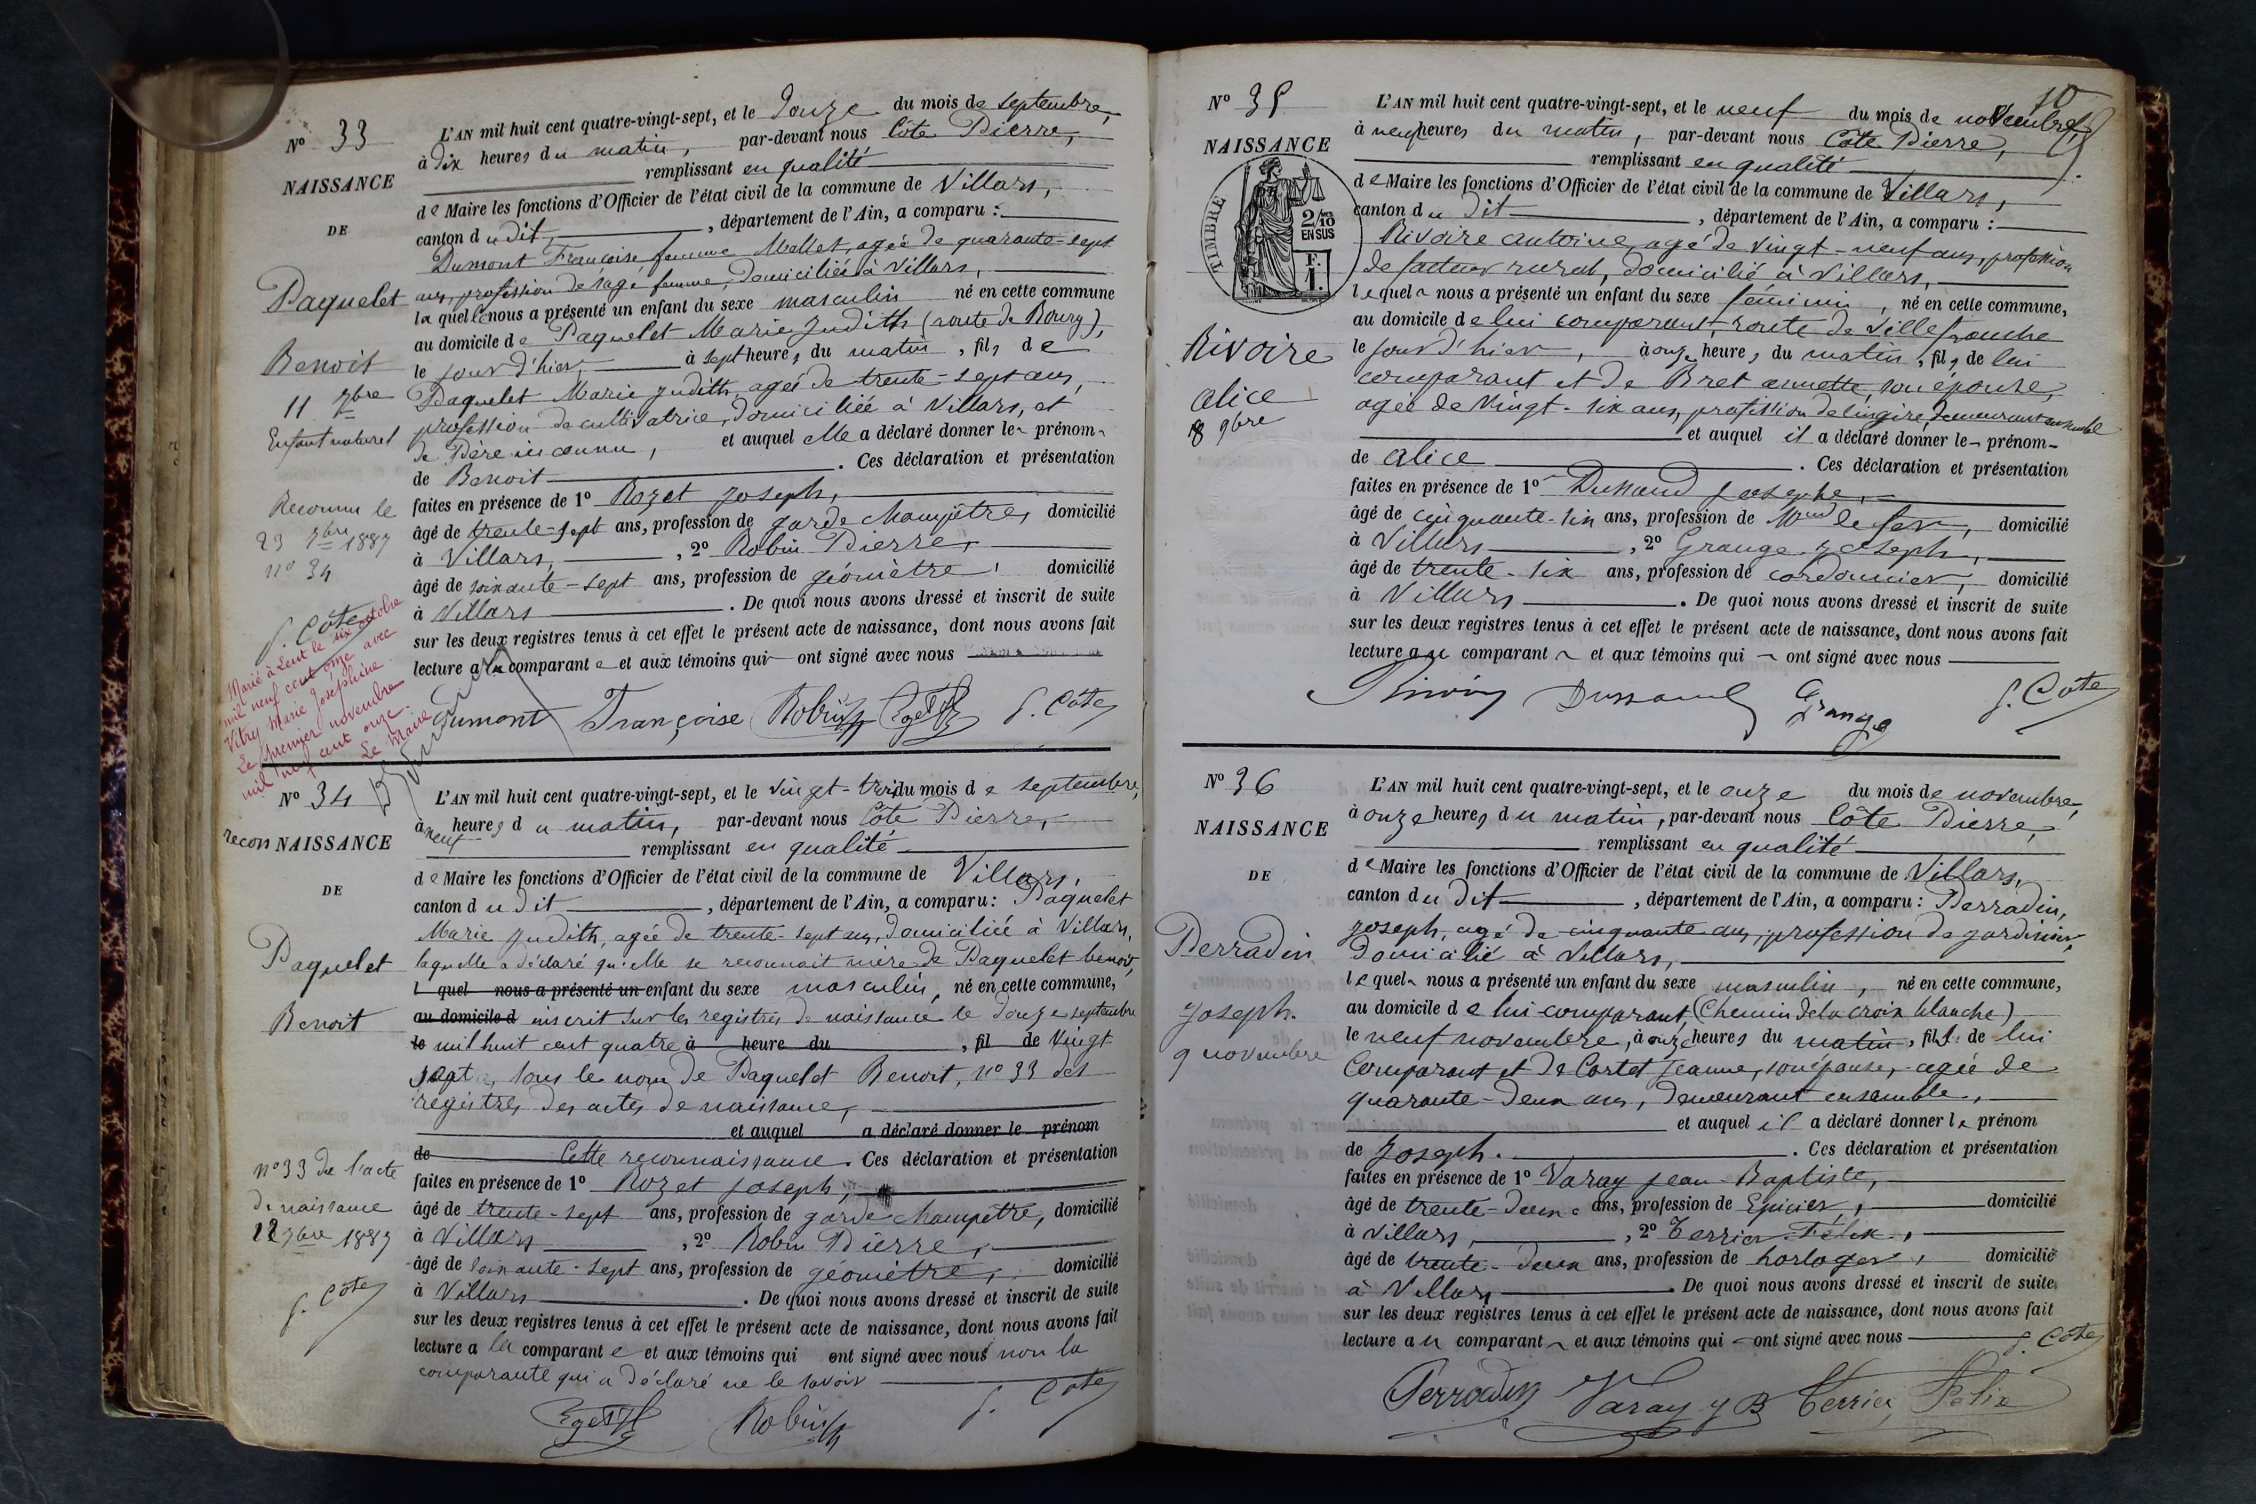 N° 33
NAISSANCE
DE
Paquelet
Benoit
11 7bre
Enfant naturel
Reconnu le
23 7bre 1887
n° 34
P. Côte
Marié à Lent le six octobre
mil neuf cent onze avec
Vitry Marie Joséphine
Le premier novembre
mil neuf cent onze.
Le Maire
L'AN mil huit cent quatre-vingt-sept, et le douze du mois de septembre,
à dix heures du matin, par-devant nous Côte Pierre,
remplissant en qualité
de Maire les fonctions d'Officier de l'état civil de la commune de Villars,
canton dudit, département de l'Ain, a comparu :
Dumont Françoise femme Mallet, agée de quarante-sept
ans, profession de sage femme, domiciliée à Villars,
laquelle nous a présenté un enfant du sexe masculin né en cette commune
au domicile de Paquelet Marie Judith (route de Bourg),
le jour d'hier, à sept heures du matin, fils de
Paquelet Marie Judith, agée de trente-sept ans,
profession de cultivatrice, domiciliée à Villars, et
de Père inconnu, et auquel elle a déclaré donner le prénom
de Benoit. Ces déclaration et présentation
faites en présence de 1° Rozet Joseph,
âgé de trente-sept ans, profession de garde champêtre, domicilié
à Villars, , 2° Robin Pierre,
âgé de soixante-sept ans, profession de géomètre, domicilié
à Villars. De quoi nous avons dressé et inscrit de suite
sur les deux registres tenus à cet effet le présent acte de naissance, dont nous avons fait
lecture a la comparante et aux témoins qui ont signé avec nous
Dumont Françoise Robin P. Côte
N° 34
recon NAISSANCE
DE
Paquelet
Benoit
n° 33 de l'acte
de naissance
12 7bre 1887
P. Côte
L'AN mil huit cent quatre-vingt-sept, et le vingt-trois du mois de septembre,
à neuf heures du matin, par-devant nous Côte Pierre,
remplissant en qualité
de Maire les fonctions d'Officier de l'état civil de la commune de Villars,
canton dudit, département de l'Ain, a comparu : Paquelet
Marie Judith, agée de trente-sept ans, domiciliée à Villars,
laquelle a déclaré qu'elle se reconnait mère de Paquelet benoit,
l quel nous a présenté un enfant du sexe masculin, né en cette commune,
au domicile d inscrit sur les registres de naissance le douze septembre
le mil huit cent quatre à heure du , fil de vingt
sept, sous le nom de Paquelet Benoit, n° 33 des
registres des actes de naissance,
et auquel a déclaré donner le prénom
de Cette reconnaissance. Ces déclaration et présentation
faites en présence de 1° Rozet Joseph,
âgé de trente-sept ans, profession de garde champêtre, domicilié
à Villars, 2° Robin Pierre,
âgé de soixante-sept ans, profession de géomètre, domicilié
à Villars. De quoi nous avons dressé et inscrit de suite
sur les deux registres tenus à cet effet le présent acte de naissance, dont nous avons fait
lecture a la comparante et aux témoins qui ont signé avec nous non la
comparante qui a déclaré ne le savoir
Robin P. Côte
10
N° 35
NAISSANCE
TIMBRE
2/10 EN SUS
F. 1.
Rivoire
alice
8 9bre
L'AN mil huit cent quatre-vingt-sept, et le neuf du mois de novembre,
à neuf heures du matin, par-devant nous Côte Pierre,
remplissant en qualité
de Maire les fonctions d'Officier de l'état civil de la commune de Villars,
canton du dit, département de l'Ain, a comparu :
Rivoire antoine, agé de vingt-neuf ans, profession
de facteur rural, domicilié à Villars,
lequel nous a présenté un enfant du sexe féminin, né en cette commune,
au domicile de lui comparant, route de Villefranche
le jour d'hier, à onze heures du matin, fils de lui
comparant et de Bret annette, son épouse,
agée de vingt-six ans, profession de lingère, demeurant ensemble
et auquel il a déclaré donner le prénom
de alice. Ces déclaration et présentation
faites en présence de 1° Dussaud Josephe,
âgé de cinquante-six ans, profession de Mand de fer, domicilié
à Villars, 2° Grange Joseph,
âgé de trente-six ans, profession de cordonnier, domicilié
à Villars. De quoi nous avons dressé et inscrit de suite
sur les deux registres tenus à cet effet le présent acte de naissance, dont nous avons fait
lecture au comparant et aux témoins qui ont signé avec nous
Rivoire Dussaud Grange P. Côte
N° 36
NAISSANCE
DE
Perradin
Joseph.
9 novembre
L'AN mil huit cent quatre-vingt-sept, et le onze du mois de novembre,
à onze heures du matin, par-devant nous Côte Pierre,
remplissant en qualité
de Maire les fonctions d'Officier de l'état civil de la commune de Villars,
canton du dit, département de l'Ain, a comparu : Perradin,
Joseph, agé de cinquante ans, profession de jardinier,
domicilié à Villars,
lequel nous a présenté un enfant du sexe masculin, né en cette commune,
au domicile de lui comparant, (Chemin de la croix blanche)
le neuf novembre, à onze heures du matin, fils de lui
Comparant et de Cortet Jeanne, son épouse, agée de
quarante-deux ans, demeurant ensemble,
et auquel il a déclaré donner le prénom
de Joseph. Ces déclaration et présentation
faites en présence de 1° Varay Jean-Baptiste,
âgé de trente-deux ans, profession de Epicier, domicilié
à Villars, 2° Terrier Félix,
âgé de trente-deux ans, profession de horloger, domicilié
à Villars. De quoi nous avons dressé et inscrit de suite
sur les deux registres tenus à cet effet le présent acte de naissance, dont nous avons fait
lecture au comparant et aux témoins qui ont signé avec nous P. Côte
Perradin Varay J B Terrier Félix